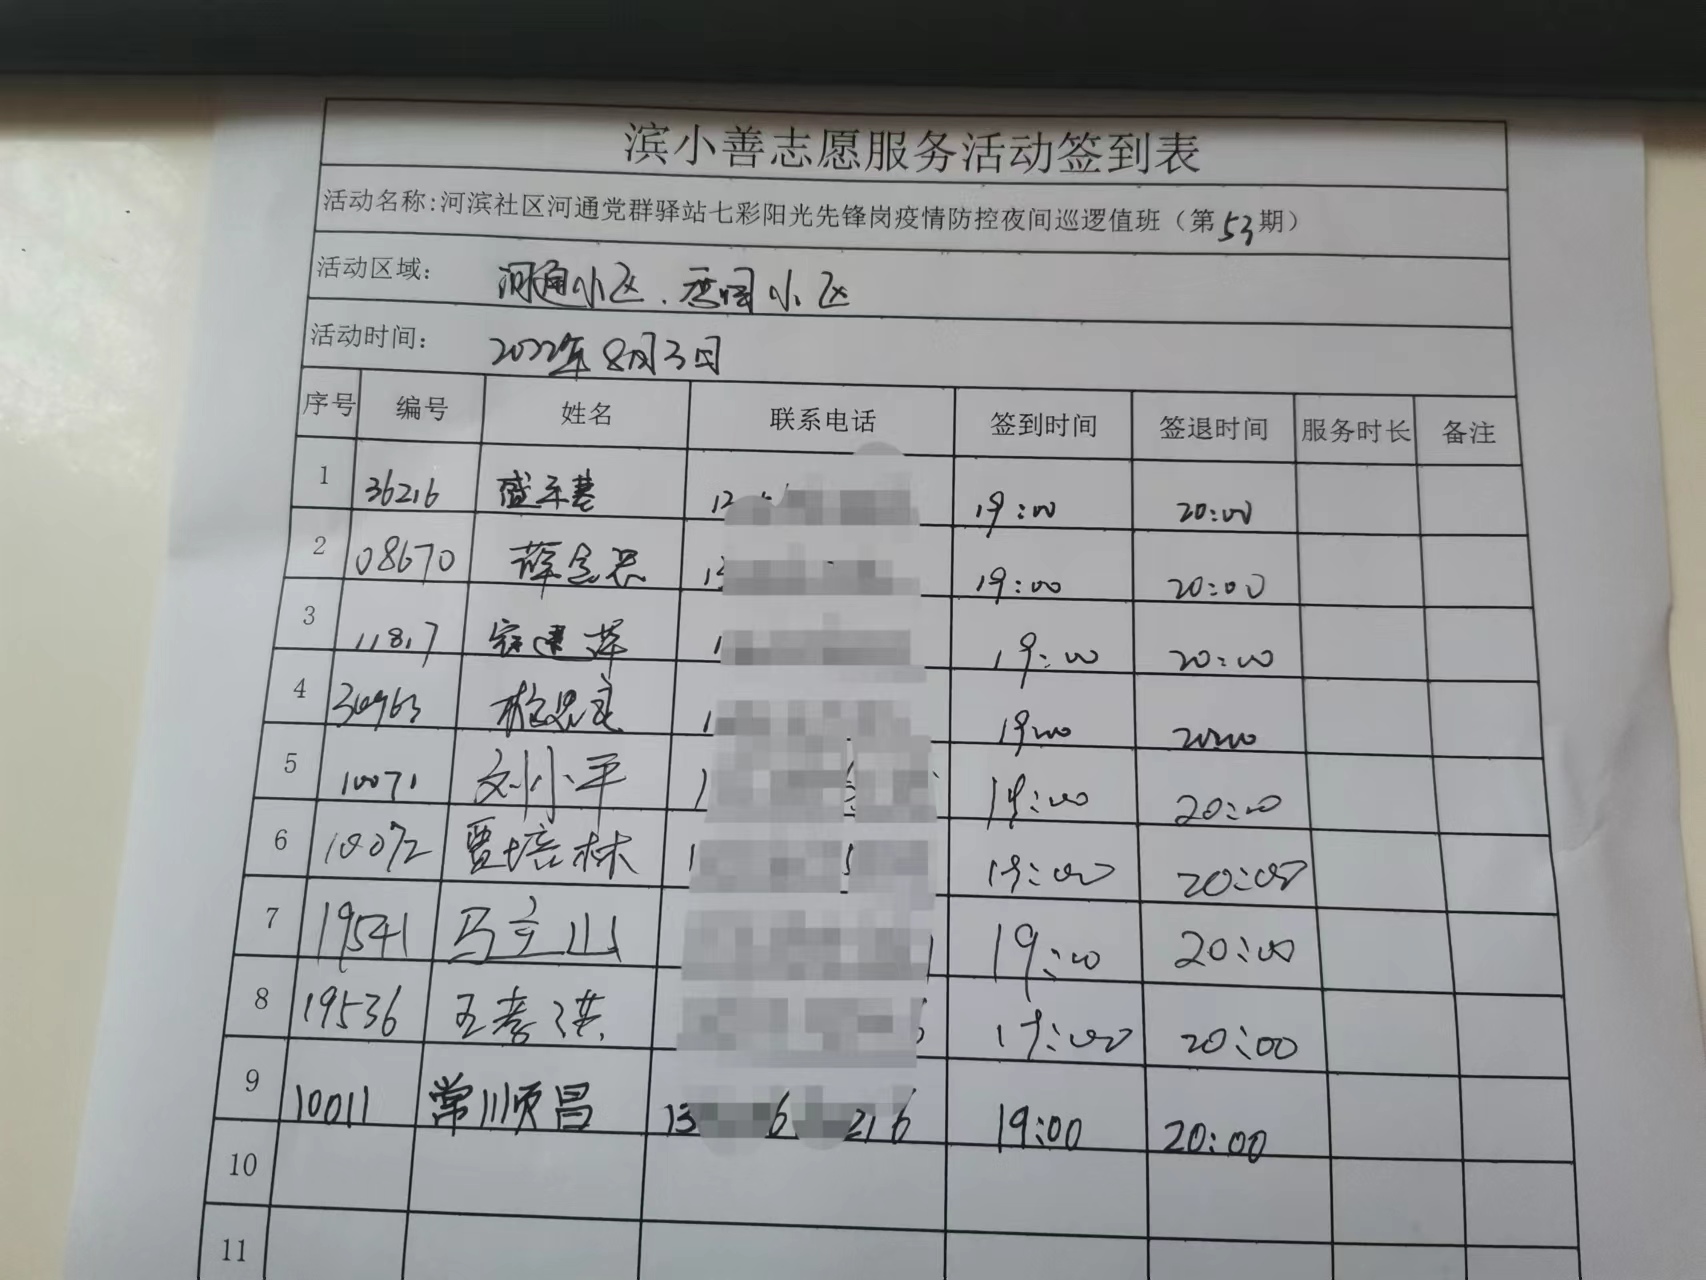 滨小善志愿服务活动签到表
活动名称:河滨社区河通党群驿站七彩阳光先锋岗疫情防控夜间巡逻值班（第53期）
活动区域： 河通小区、香园小区
活动时间： 2022年8月3日
序号 编号 姓名 联系电话 签到时间 签退时间 服务时长 备注
1 36216 盛玉基 19:00 20:00
2 08670 薛金忠 19:00 20:00
3 11817 建萍 19:00 20:00
4 30963 19:00 20:00
5 10071 刘小平 19:00 20:00
6 10072 贾培林 19:00 20:00
7 19541 马立山 19:00 20:00
8 19536 王孝洪 19:00 20:00
9 10011 常顺昌 13 6 216 19:00 20:00
10
11